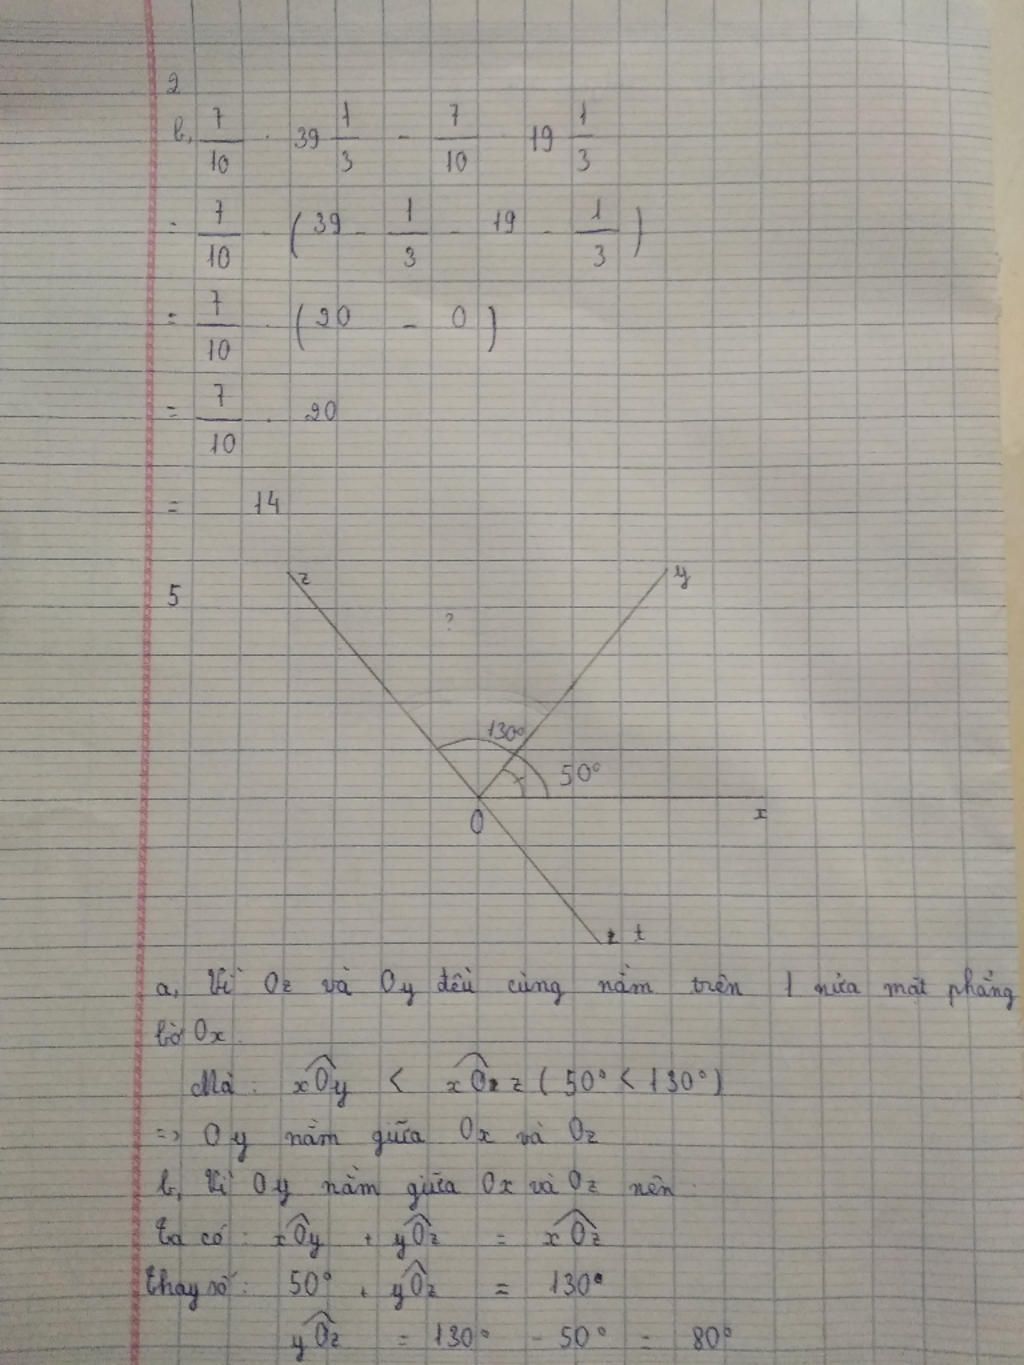 2
b, 7/10 . 39 1/3 - 7/10 . 19 1/3
= 7/10 . ( 39 - 1/3 - 19 - 1/3 )
= 7/10 . ( 20 - 0 )
= 7/10 . 20
= 14
5
z
y
?
130°
50°
O
x
t
a, Vì Oz và Oy đều cùng nằm trên 1 nửa mặt phẳng
bờ Ox.
Mà : xOy < xOz ( 50° < 130° )
=> Oy nằm giữa Ox và Oz
b, Vì Oy nằm giữa Ox và Oz nên :
Ta có : xOy + yOz = xOz
Thay số : 50° + yOz = 130°
yOz = 130° - 50° = 80°